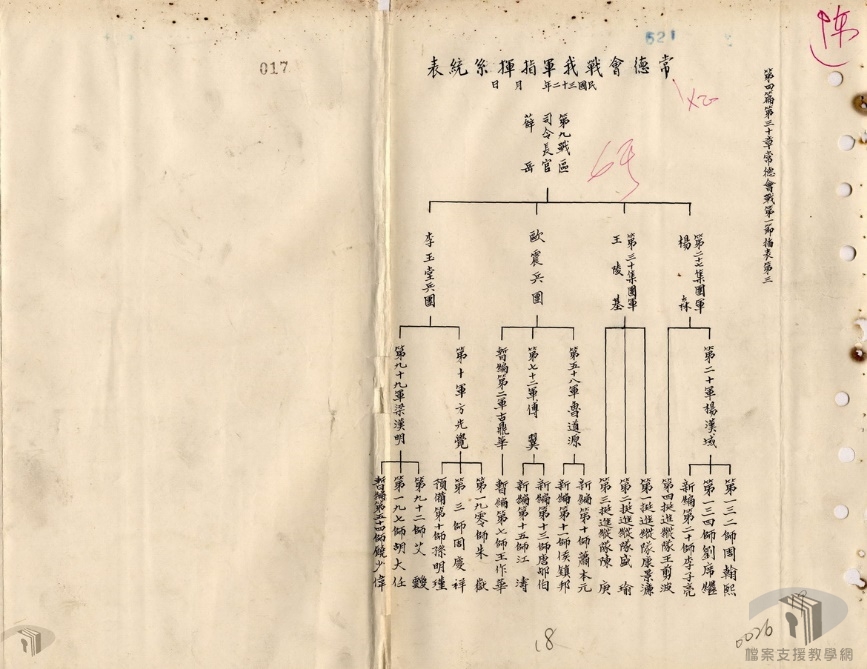 017
621
陳
第四篇第三十章常德會戰第一節插表第三
常德會戰我軍指揮系統表
民國三十二年 月 日
第九戰區
司令長官
薛岳
第二十七集團軍
楊森
第三十集團軍
王陵基
歐震兵團
李玉堂兵團
第二十軍楊漢域
第五十八軍魯道源
第七十二軍傅翼
暫編第二軍古鼎華
第十軍方先覺
第九十九軍梁漢明
第一三三師周翰熙
第一三四師劉席
新編第二十師李子亮
第四挺進縱隊王剪波
第一挺進縱隊康景濂
第二挺進縱隊盛瑜
第三挺進縱隊陳庚
新編第十師蕭本元
新編第十一師侯鎮邦
新編第十三師唐郇伯
新編第十五師江濤
暫編第七師王作華
第一九零師朱嶽
第三師周慶祥
預備第十師孫明瑾
第九十二師艾靉
第一九七師胡大任
暫編第五十四師饒少偉
18
0026
檔案支援教學網